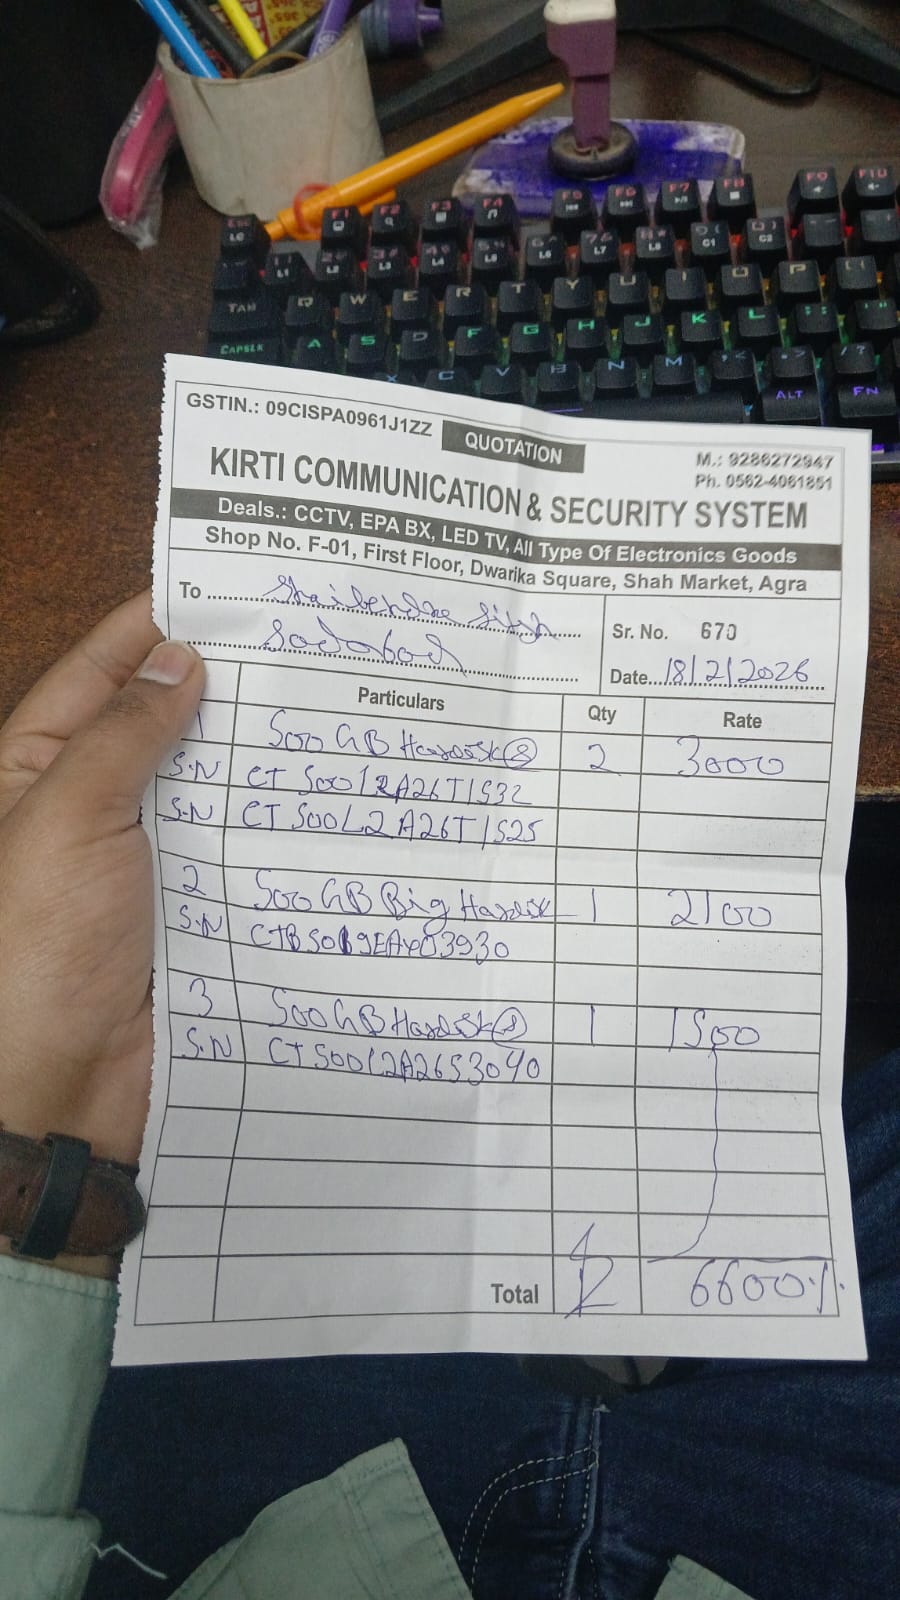 GSTIN.: 09CISPA0961J1ZZ
QUOTATION
M.: 9286272947
Ph. 0562-4061851
KIRTI COMMUNICATION & SECURITY SYSTEM
Deals.: CCTV, EPA BX, LED TV, All Type Of Electronics Goods
Shop No. F-01, First Floor, Dwarika Square, Shah Market, Agra
To
Sadabad
Sr. No. 670
Date...18/2/2026
Particulars Qty Rate
1 500 GB Hardisk (S) 2 3000
S.N CT500L2A26T1532
S.N CT500L2A26T1525
2 500 GB Big Hardisk 1 2100
S.N
3 500 GB Hardisk (S) 1 1500
S.N CT500L2A26S3040
Total 6600/.